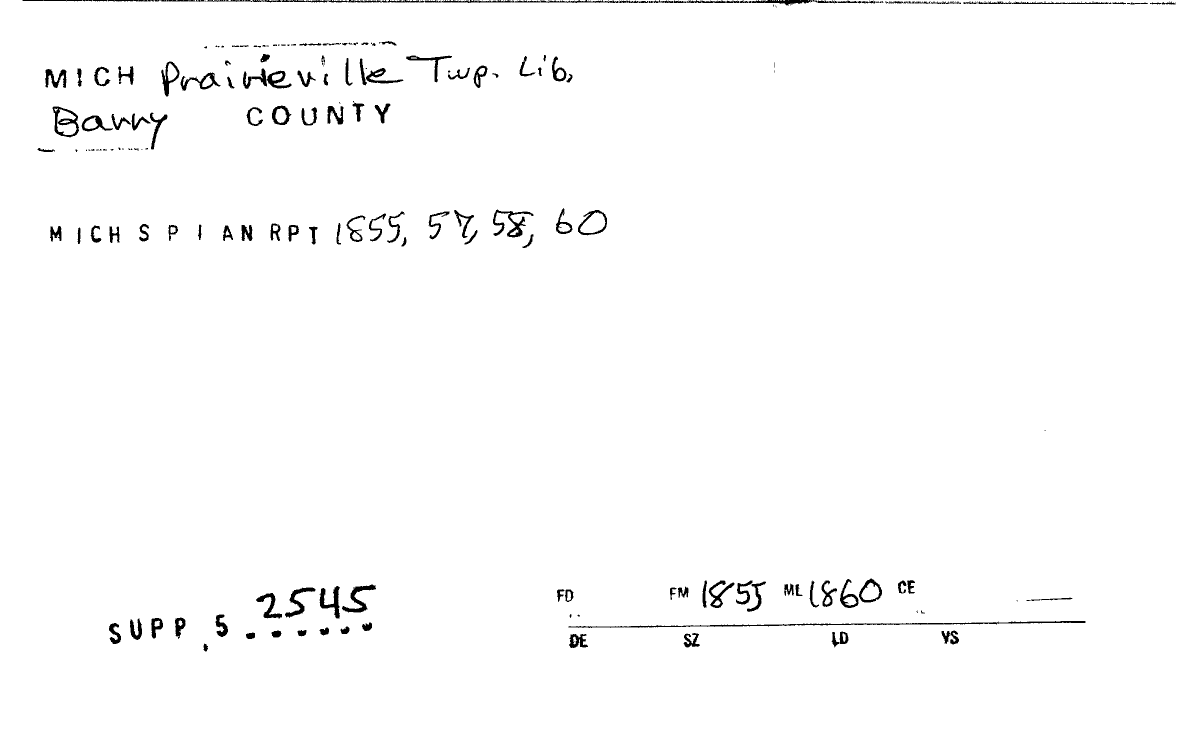 MICH Prairieville Twp. Lib.
Barry COUNTY
MICH S P I AN RPT 1855, 57, 58, 60
SUPP. 5 2545
FD FM 1855 ML 1860 CE
DE SZ LD VS